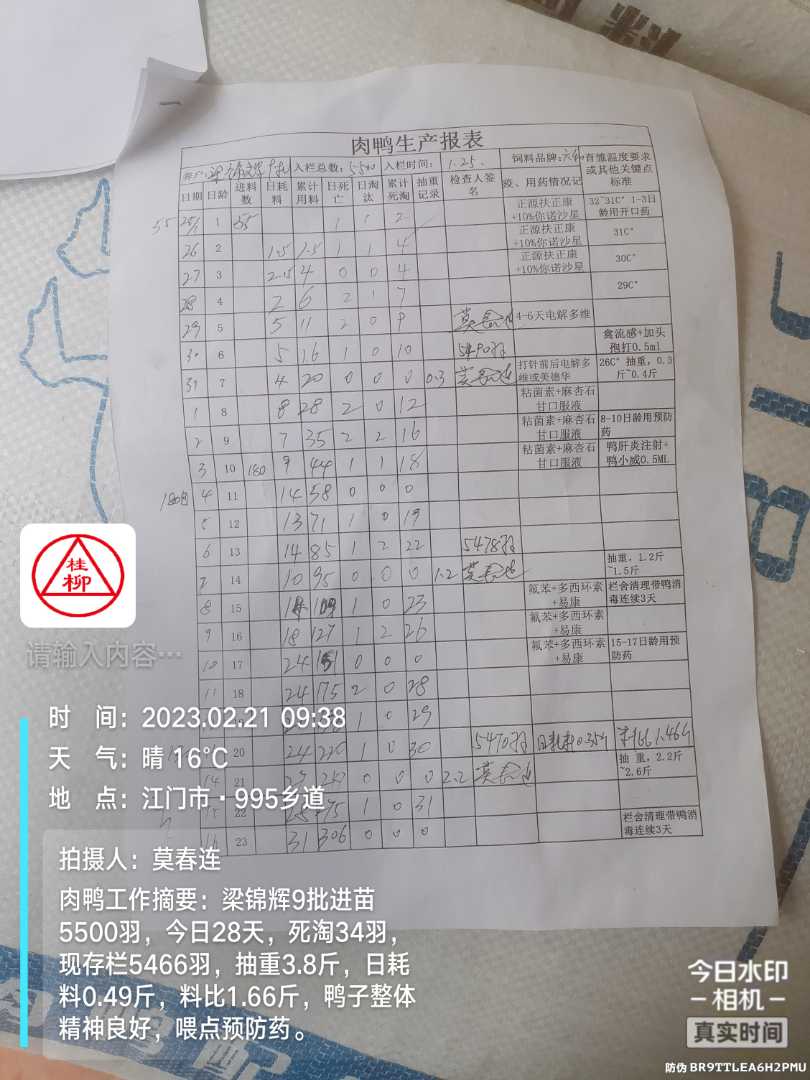 肉鸭生产报表
入栏总数: 5500 入栏时间: 1.25. 饲料品牌: 六和 育雏温度要求或其他关键点标准
日期 日龄 进料数 日耗料 累计用料 日死亡 日淘汰 累计死淘 抽重记录 检查人签名 疫、用药情况记
55 25/1 1 55 1 1 2 正源扶正康+10%你诺沙星 32~31C° 1-3日龄用开口药
26 2 1.5 1.5 1 1 4 正源扶正康+10%你诺沙星 31C°
27 3 2.5 4 0 0 4 正源扶正康+10%你诺沙星 30C°
28 4 2 6 2 1 7 29C°
29 5 5 11 2 0 9 莫春连 4-6天电解多维
30 6 5 16 1 0 10 5490羽 禽流感+加头孢打0.5ml
31 7 4 20 0 0 0 0.3 莫春连 打针前后电解多维或美德华 26C° 抽重，0.3斤~0.4斤
1 8 8 28 2 0 12 粘菌素+麻杏石甘口服液
2 9 7 35 2 2 16 粘菌素+麻杏石甘口服液 8-10日龄用预防药
3 10 180 9 44 1 1 18 粘菌素+麻杏石甘口服液 鸭肝炎注射+鸭小威0.5ML
4 11 14 58 0 0 0
5 12 13 71 1 0 19
6 13 14 85 1 2 22 5478羽
7 14 10 95 0 0 0 1.2 莫春连 抽重，1.2斤~1.5斤
8 15 14 109 1 0 23 氟苯+多西环素+易康 栏舍清理带鸭消毒连续3天
9 16 18 127 1 2 26 氟苯+多西环素+易康
10 17 24 151 0 0 0 氟苯+多西环素+易康 15-17日龄用预防药
11 18 24 175 2 0 28
1 0 29
20 24 1 0 30 5470羽 日耗料0.35斤 料比1.46斤
14 21 0 0 0 2.2 莫春连 抽重，2.2斤~2.6斤
15 22 1 0 31
16 23 31 306 0 0 0 栏舍清理带鸭消毒连续3天
桂柳
请输入内容…
时 间：2023.02.21 09:38
天 气：晴 16℃
地 点：江门市·995乡道
拍摄人：莫春连
肉鸭工作摘要：梁锦辉9批进苗
5500羽，今日28天，死淘34羽，
现存栏5466羽，抽重3.8斤，日耗
料0.49斤，料比1.66斤，鸭子整体
精神良好，喂点预防药。
今日水印
-相机-
真实时间
防伪 BR9TTLEA6H2PMU